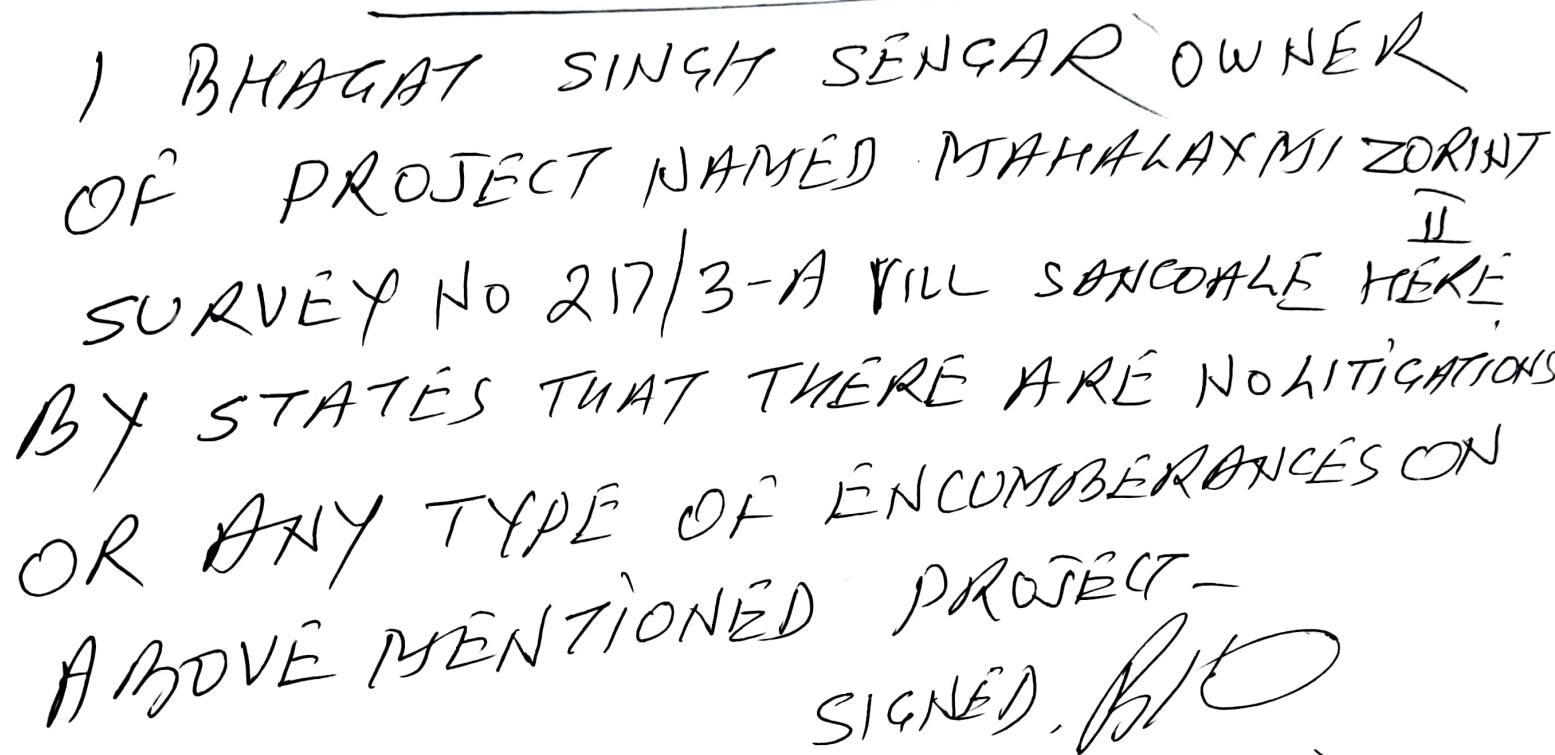 I BHAGAT SINGH SENGAR OWNER
OF PROJECT NAMED MAHALAXMI ZORINT
II
SURVEY No 217/3-A VILL SANCOALE HERE
BY STATES THAT THERE ARE NO LITIGATIONS
OR ANY TYPE OF ENCUMBERANCES ON
ABOVE MENTIONED PROJECT-
SIGNED.